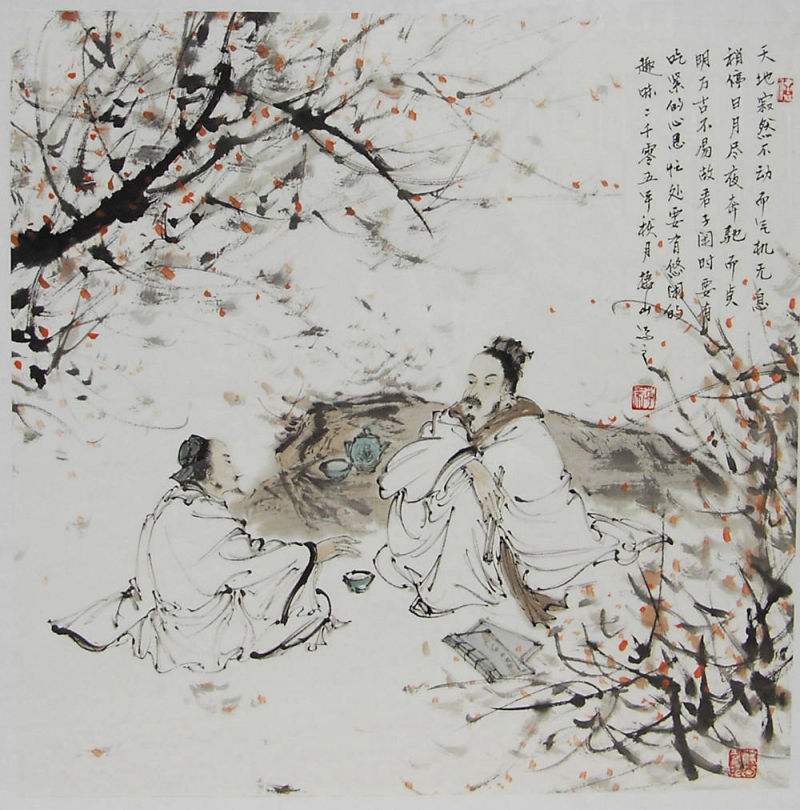 天地寂然不动而气机无息
稍停日月尽夜奔驰而贞
明万古不易故君子闲时要有
吃紧的心思忙处要有悠闲的
趣味二千零五年秋月山